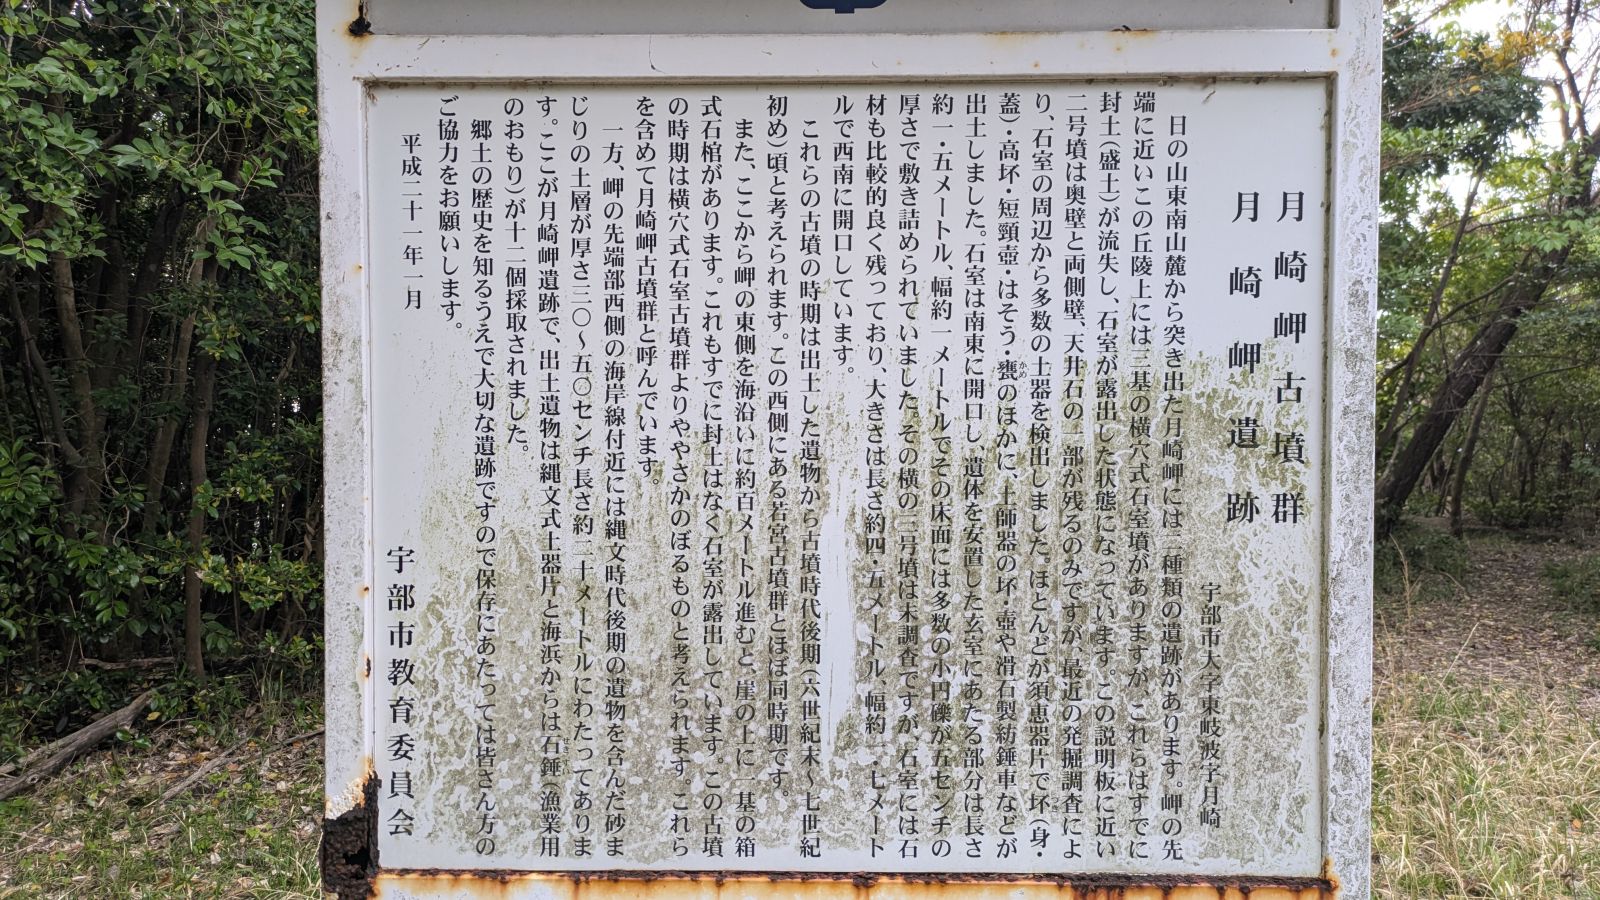 月崎岬古墳群
月崎岬遺跡
宇部市大字東岐波字月崎
日の山東南山麓から突き出た月崎岬には二種類の遺跡があります。岬の先
端に近いこの丘陵上には三基の横穴式石室墳がありますが、これらはすでに
封土(盛土)が流失し、石室が露出した状態になっています。この説明板に近い
二号墳は奥壁と両側壁、天井石の一部が残るのみですが、最近の発掘調査によ
り、石室の周辺から多数の土器を検出しました。ほとんどが須恵器片で坏(身・
蓋)・高坏・短頸壺・はそう・甕のほかに、土師器の坏・壺や滑石製紡錘車などが
出土しました。石室は南東に開口し、遺体を安置した玄室にあたる部分は長さ
約一・五メートル、幅約一メートルでその床面には多数の小円礫が五センチの
厚さで敷き詰められていました。その横の三号墳は未調査ですが、石室には石
材も比較的良く残っており、大きさは長さ約四・五メートル、幅約一・七メート
ルで西南に開口しています。
これらの古墳の時期は出土した遺物から古墳時代後期(六世紀末~七世紀
初め)頃と考えられます。この西側にある若宮古墳群とほぼ同時期です。
また、ここから岬の東側を海沿いに約百メートル進むと、崖の上に一基の箱
式石棺があります。これもすでに封土はなく石室が露出しています。この古墳
の時期は横穴式石室古墳群よりややさかのぼるものと考えられます。これら
を含めて月崎岬古墳群と呼んでいます。
一方、岬の先端部西側の海岸線付近には縄文時代後期の遺物を含んだ砂ま
じりの土層が厚さ三〇~五〇センチ長さ約二十メートルにわたってありま
す。ここが月崎岬遺跡で、出土遺物は縄文式土器片と海浜からは石錘(漁業用
のおもり)が十二個採取されました。
郷土の歴史を知るうえで大切な遺跡ですので保存にあたっては皆さん方の
ご協力をお願いします。
平成二十一年一月
宇部市教育委員会